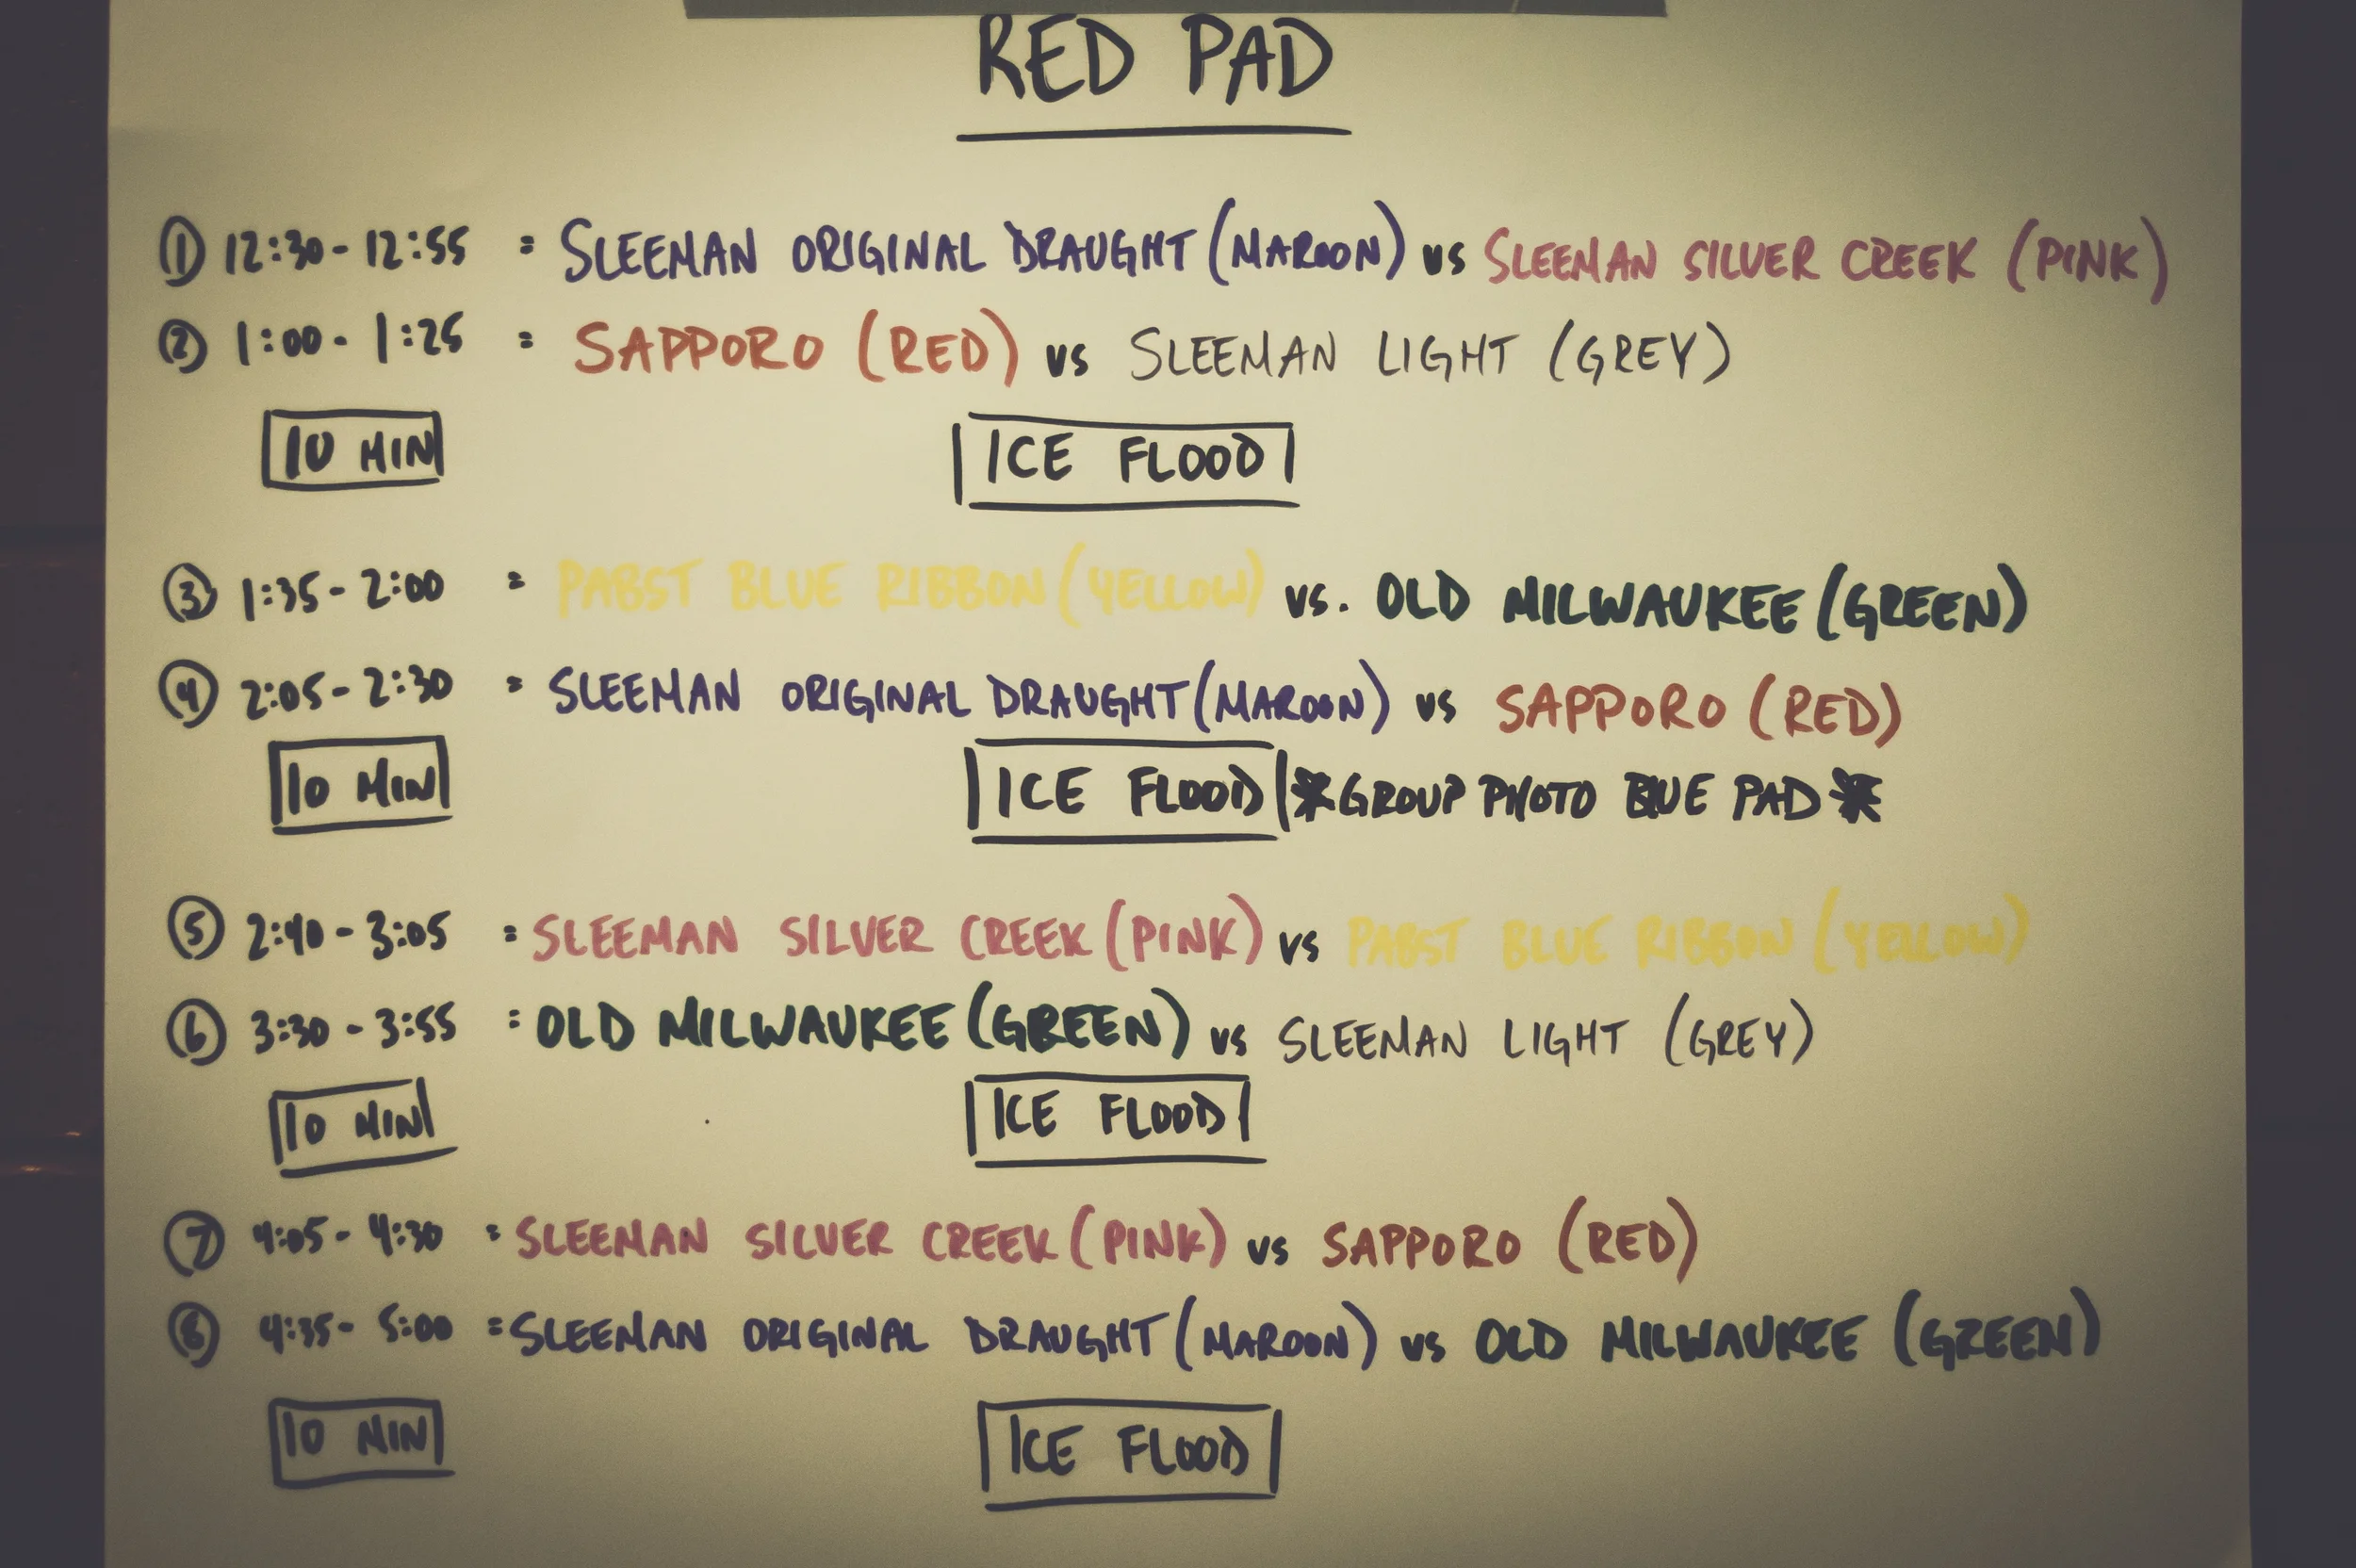 RED PAD
① 12:30 - 12:55 = SLEEMAN ORIGINAL DRAUGHT (MAROON) vs SLEEMAN SILVER CREEK (PINK)
② 1:00 - 1:25 = SAPPORO (RED) vs SLEEMAN LIGHT (GREY)
10 MIN ICE FLOOD
③ 1:35 - 2:00 = PABST BLUE RIBBON (YELLOW) vs. OLD MILWAUKEE (GREEN)
④ 2:05 - 2:30 = SLEEMAN ORIGINAL DRAUGHT (MAROON) vs SAPPORO (RED)
10 MIN ICE FLOOD * GROUP PHOTO BLUE PAD *
⑤ 2:40 - 3:05 = SLEEMAN SILVER CREEK (PINK) vs PABST BLUE RIBBON (YELLOW)
⑥ 3:30 - 3:55 = OLD MILWAUKEE (GREEN) vs SLEEMAN LIGHT (GREY)
10 MIN ICE FLOOD
⑦ 4:05 - 4:30 = SLEEMAN SILVER CREEK (PINK) vs SAPPORO (RED)
⑧ 4:35 - 5:00 = SLEEMAN ORIGINAL DRAUGHT (MAROON) vs OLD MILWAUKEE (GREEN)
10 MIN ICE FLOOD